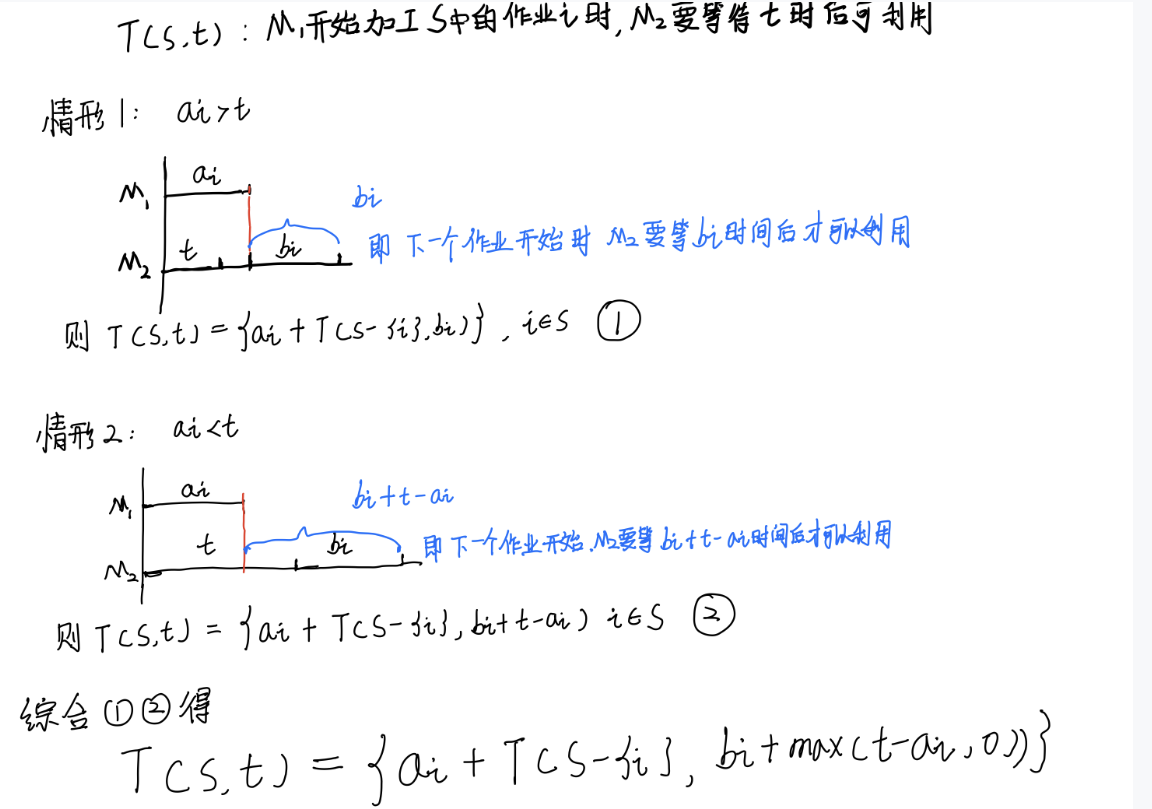 T(S,t) : M₁开始加工S中的作业i时,M₂要等待t时后可利用
情形1: ai>t
ai
M₁
bi
t
bi
即 下一个作业开始时 M₂要等bi时间后才可以利用
M₂
则 T(S,t) = {ai + T(S-{i},bi)} , i∈S ①
情形2: ai<t
ai
M₁
bi+t-ai
t
bi
即下一个作业开始.M₂要等bi+t-ai时间后才可以利用
M₂
则 T(S,t) = {ai + T(S-{i}, bi+t-ai) i∈S ②
综合①②得
T(S,t) = {ai + T(S-{i}, bi+max(t-ai,0))}